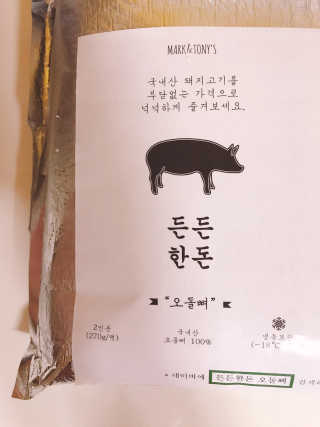 MARK&TONY'S
국내산 돼지고기를
부담없는 가격으로
넉넉하게 즐겨보세요.
든든
한돈
"오돌뼈"
2인분
(270g/팩)
국내산
오돌뼈 100%
냉동보관
(-18℃
* 네이버에 든든한돈 오돌뼈 검색